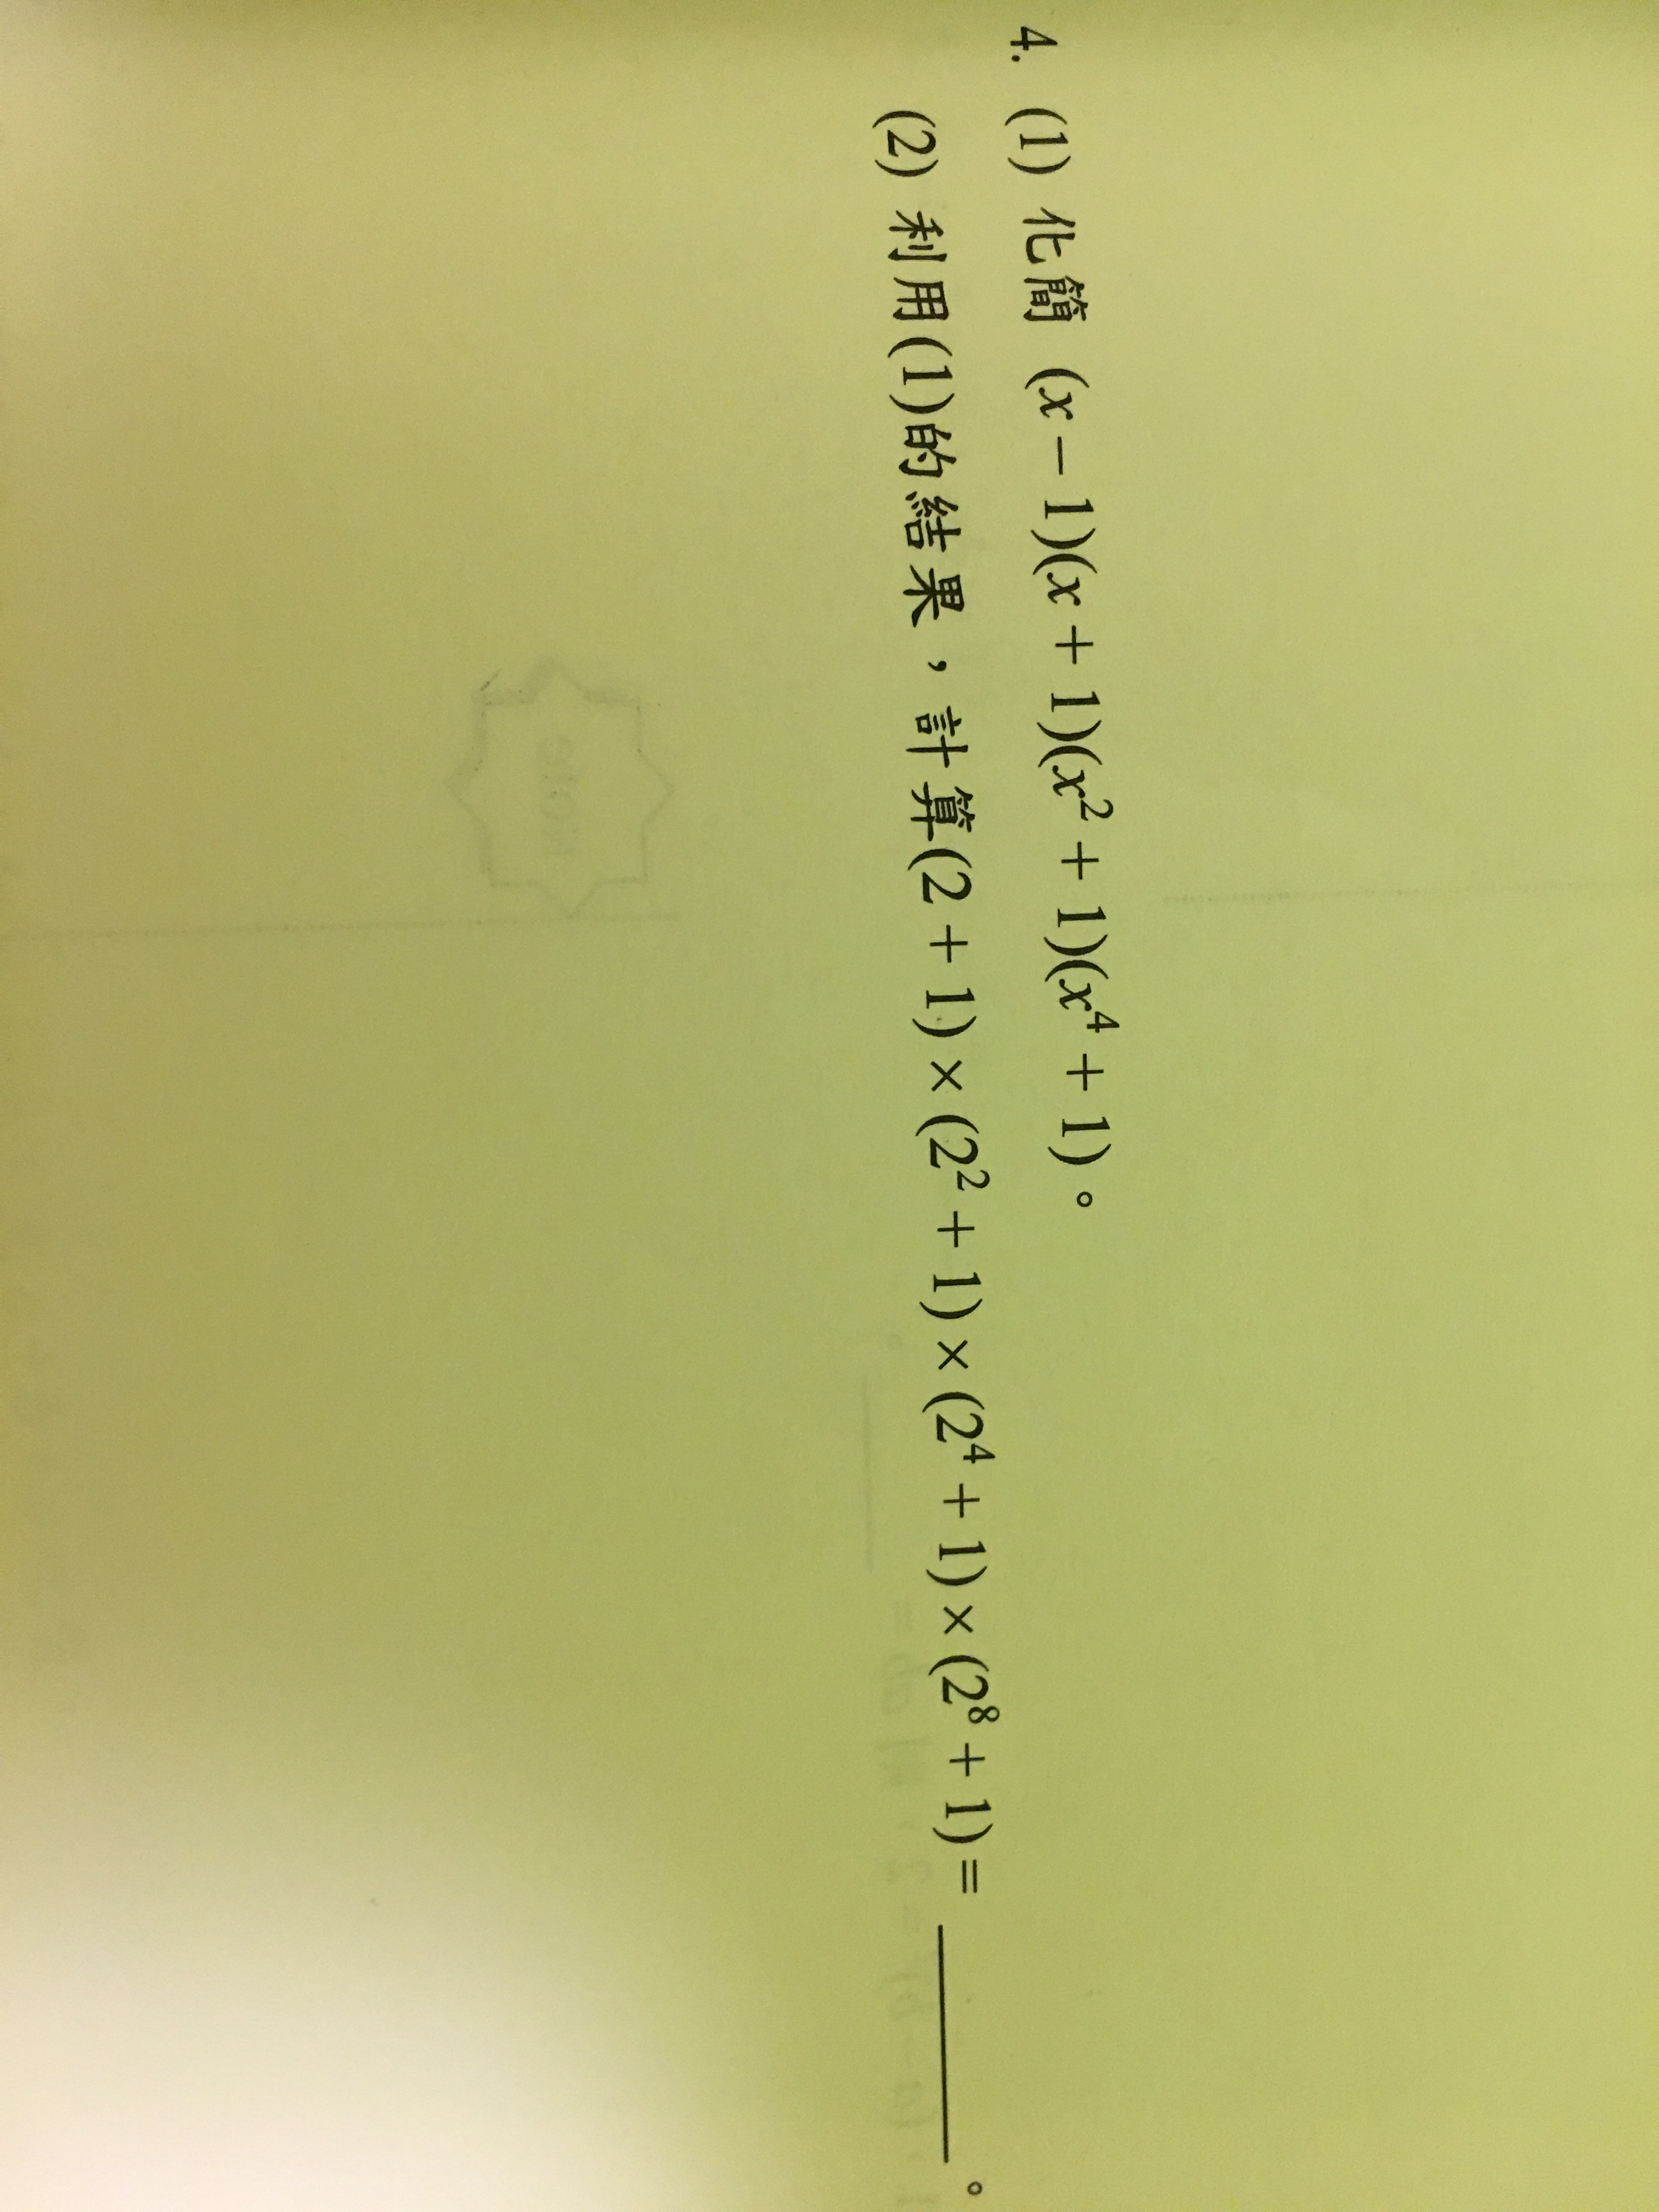 4. (1) 化簡 (x－1)(x＋1)(x²＋1)(x⁴＋1)。
(2) 利用(1)的結果，計算(2＋1)×(2²＋1)×(2⁴＋1)×(2⁸＋1)＝＿＿＿＿。